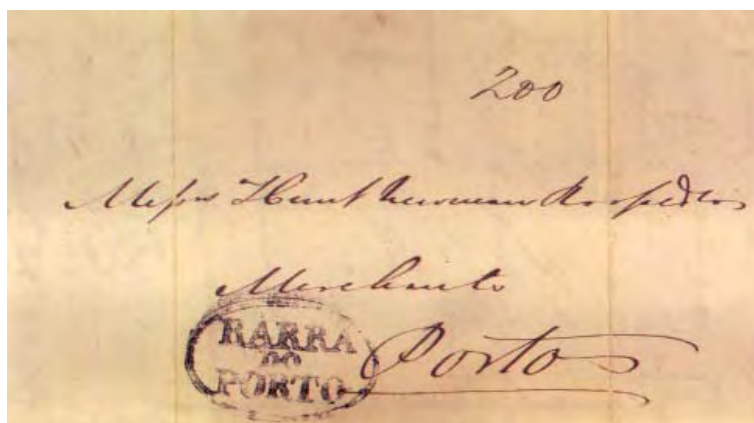 200
Messrs Hunt Newman Roope & Co
Merchants
BARRA
DO
PORTO
Porto